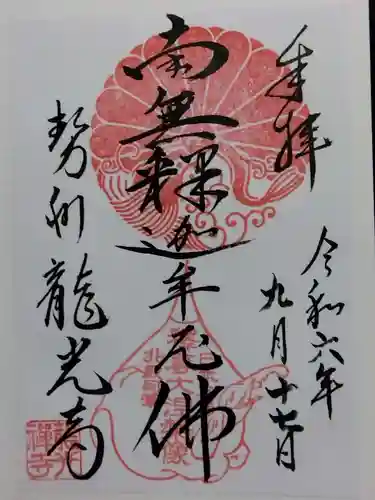 奉拝
令和六年
九月十七日
南無釋迦牟尼佛
勢州龍光寺